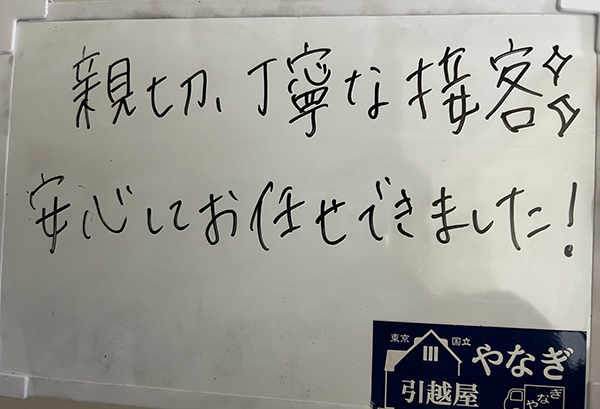 親切、丁寧な接客
安心してお任せできました!
東京 国立
やなぎ
引越屋
やなぎ